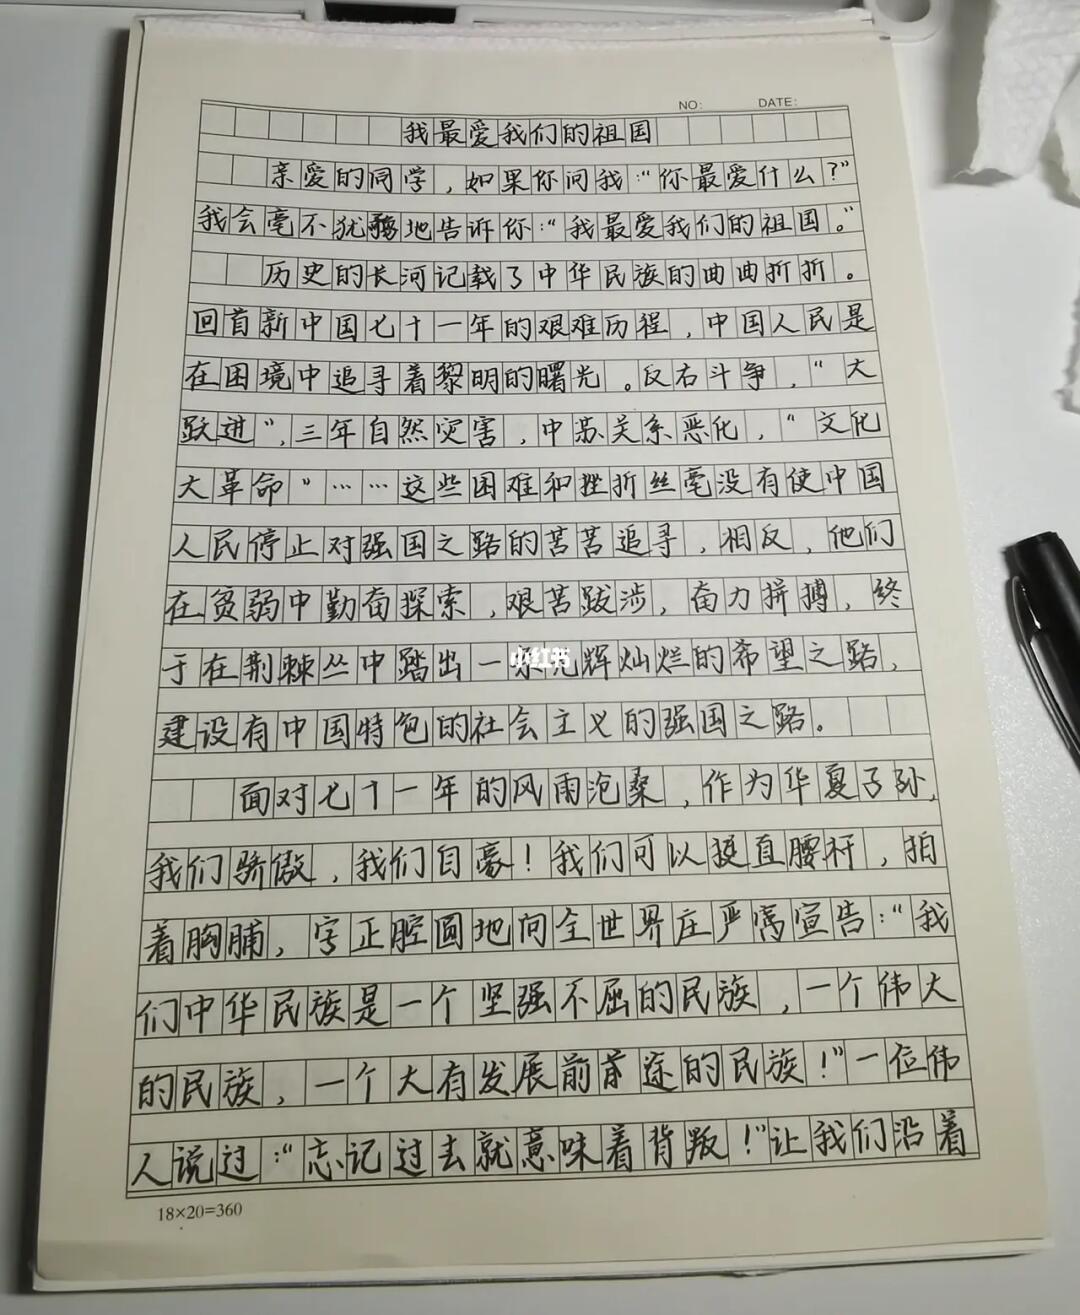 NO:    DATE:
我最爱我们的祖国
亲爱的同学，如果你问我：“你最爱什么？”
我会毫不犹豫地告诉你：“我最爱我们的祖国。”
历史的长河记载了中华民族的曲曲折折。
回首新中国七十一年的艰难历程，中国人民是
在困境中追寻着黎明的曙光。反右斗争，“大
跃进”，三年自然灾害，中苏关系恶化，“文化
大革命”……这些困难和挫折丝毫没有使中国
人民停止对强国之路的苦苦追寻，相反，他们
在贫弱中勤奋探索，艰苦跋涉，奋力拼搏，终
于在荆棘丛中踏出一条光辉灿烂的希望之路，
小红书
建设有中国特色的社会主义的强国之路。
面对七十一年的风雨沧桑，作为华夏子孙，
我们骄傲，我们自豪！我们可以挺直腰杆，拍
着胸脯，字正腔圆地向全世界庄严宣告：“我
们中华民族是一个坚强不屈的民族，一个伟大
的民族，一个大有发展前途的民族！”一位伟
人说过：“忘记过去就意味着背叛！”让我们沿着
18×20=360